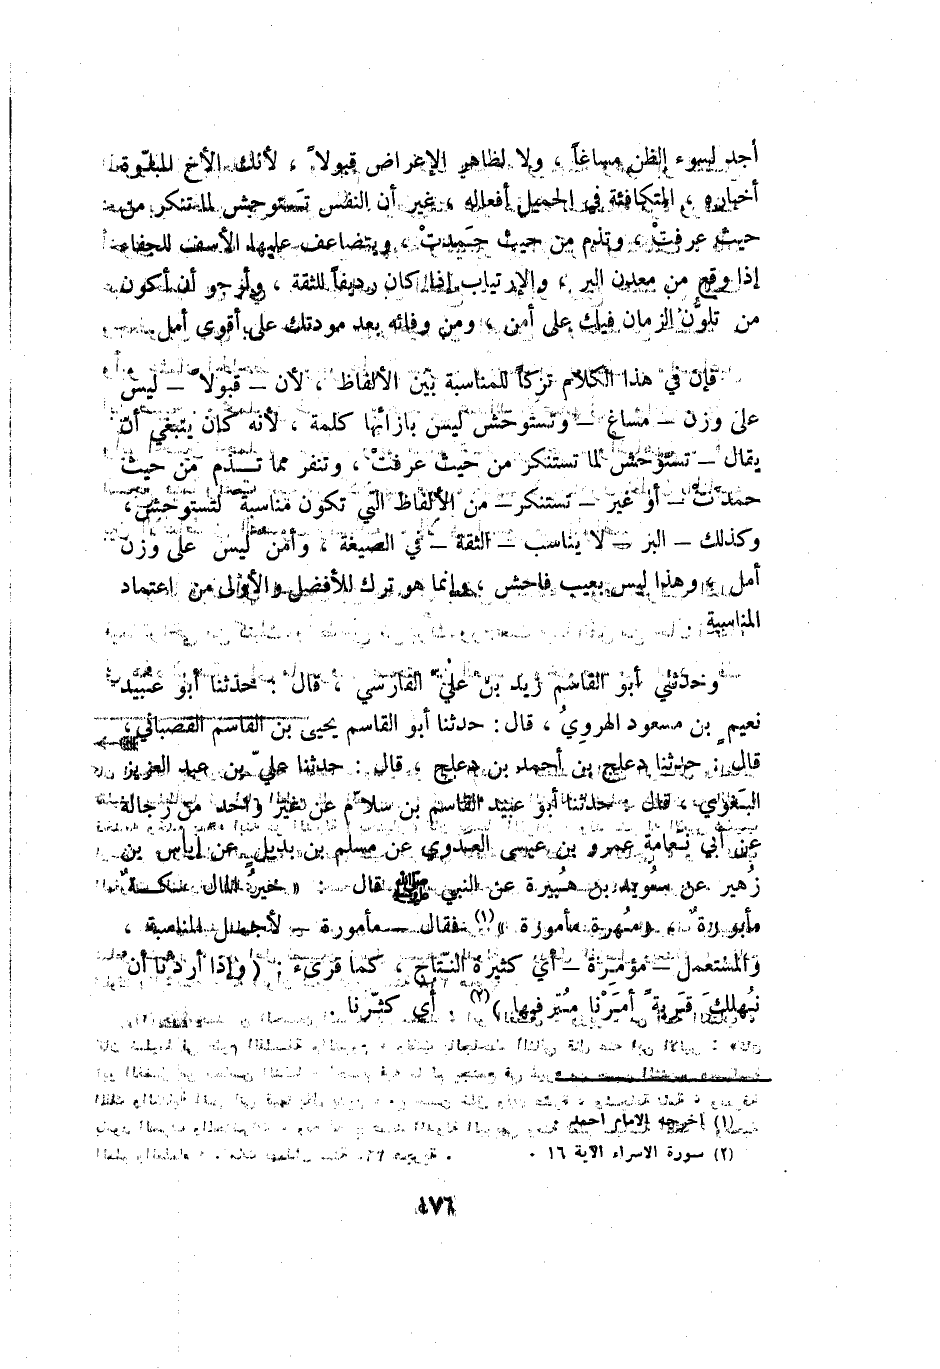 أجد لسوء الظن مساغاً ، ولا لظاهر الإعراض قبولاً ، لأنك الأخ المبلوّة
أخباره ، المتكافئة في الجميل أفعاله ، غير أن النفس تستوحش لما تستنكر من
حيث عرفتْ ، وتذم من حيث حَمِدتْ ، ويتضاعف عليها الأسف للجفاء
إذا وقع من معدن البر ، والارتياب إذا كان رديفاً للثقة ، وأرجو أن أكون
من تلوُّن الزمان فيك على أمن ، ومن وفائه بعد مودتك على أقوى أمل
فإن في هذا الكلام تركاً للمناسبة بين الألفاظ ، لأن – قبولاً – ليس
على وزن – مساغ – وتستوحش ليس بازائها كلمة ، لأنه كان ينبغي أن
يقال – تستوحش لما تستنكر من حيث عرفتْ ، وتنفر مما تــذم من حيث
حمدت – أو غير – تستنكر – من الألفاظ التي تكون مناسبة لتستوحش ،
وكذلك – البر – لا يناسب – الثقة – في الصيغة ، وأمن ليس على وزن
أمل ، وهذا ليس بعيب فاحش ، وإنما هو ترك للأفضل والأولى من اعتماد
المناسبة
وحدثني أبو القاسم زيد بن علي الفارسي ، قال : حدثنا أبو عبيد
نعيم بن مسعود الهرويُ ، قال : حدثنا أبو القاسم يحيى بن القاسم القصباني ،
قال : حدثنا دعلج بن أحمد بن دعلج ، قال : حدثنا عليّ بن عبد العزيز
البَغَوي ، قال : حدثنا أبو عبيد القاسم بن سلاّم عن غير واحد من رجاله
عن أبي نَعامة عمرو بن عيسى العدوي عن مسلم بن بديل عن إياس بن
زُهير عن سُويد بن هُبيرة عن النبي ﷺ قال : « خيرُ المال سكــةٌ
مأبورةٌ ، ومُهرة مأمورة »(١) فقال – مأمورة – لأجــل المناسبة ،
والمستعمل – مؤمرة – أي كثيرة النّتاج ، كما قرىء : ( وإذا أردنا أن
نُهلكَ قريةً أمّرْنا مُترفيها )(٢) . أي كثّرنا .
(١) اخرجه الامام احمد
(٢) سورة الاسراء الآية ١٦ .
٤٧٦